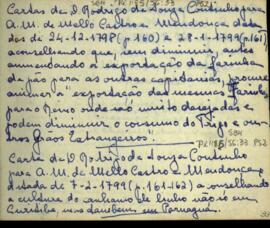 Cartas de D. Rodrigo de Souza Coutinho para
A. M. de Mello Castro e Mendonça, data
das de 24-12-798 (p.160) e 28-1-1799 (p.161)
aconselhando que, sem diminuir, antes
augmentando a exportação da farinha
de pão para as outras capitanias, promo
a "exportação das mesmas farinhas
para o Reino onde são muito desejadas e
podem diminuir o consumo do Trigo e ou
tros Grãos Estrangeiros".
Carta de D. Rodrigo de Souza Coutinho
para A. M. de Mello Castro e Mendonça,
datada de 7-2-1799 (p.161-162) aconselhando
a cultura do linho não só em
Curitiba, mas tambem em Parnaguá.